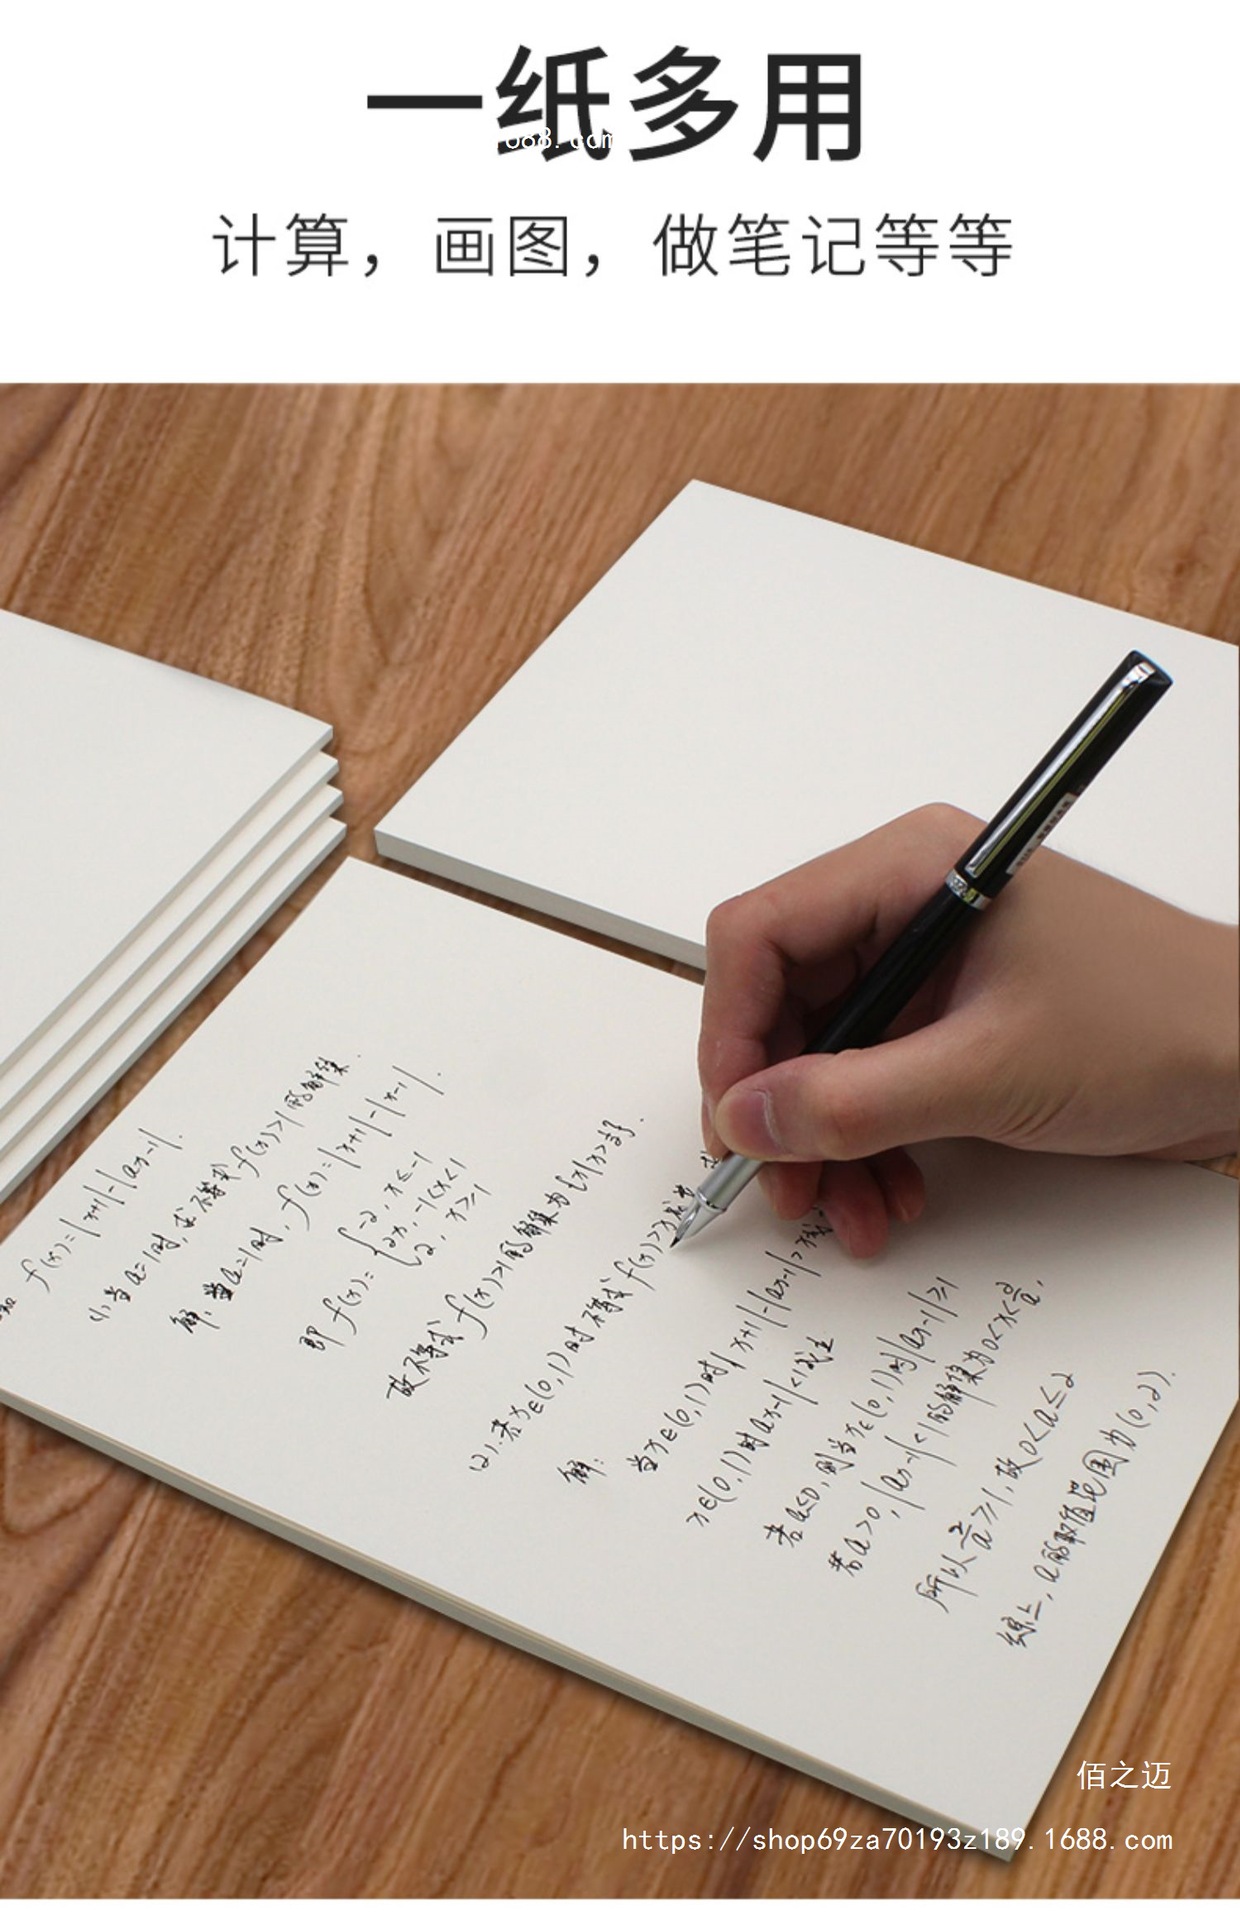 一纸多用
计算，画图，做笔记等等
f(x)=|x+1|-|ax-1|.
(1)当a=1时,求不等式f(x)>1的解集.
解:当a=1时,f(x)=|x+1|-|x-1|.
即f(x)={-2,x≤-1
2x,-1<x<1
2,x≥1
故不等式f(x)>1的解集为{x|x>
(2).若x∈(0,1)时不等式f(x)>x成
解:当x∈(0,1)时|x+1|-|ax-1|>x成
x∈(0,1)时|ax-1|<1成立
若a≤0,则当x∈(0,1)时|ax-1|≥1
若a>0,|ax-1|<1的解集为0<x<2/a,
所以2/a≥1,故0<a≤2
综上,a的取值范围为(0,2).
佰之迈
https://shop69za70193z189.1688.com